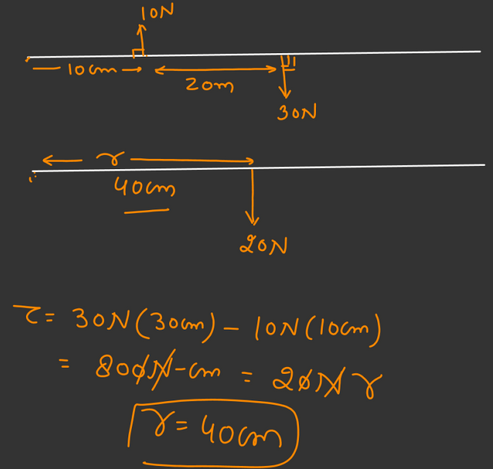 10N
10cm
20m
30N
r
40cm
20N
τ = 30N(30cm) - 10N(10cm)
= 800N-cm = 20N r
r = 40cm